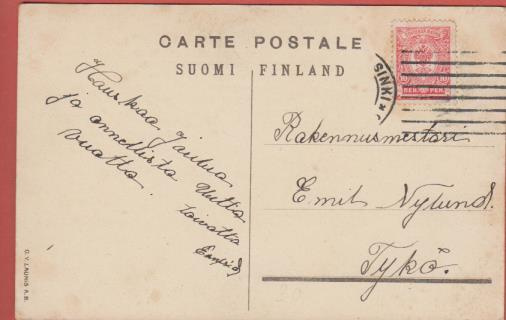 CARTE POSTALE
SUOMI FINLAND
SINKI
Hauskaa Joulua
ja onnellista Uutta
vuotta.
toivotta
Rakennusmestari
Emil Nylund.
Tykö.
G.V. LAUNIS A.B.